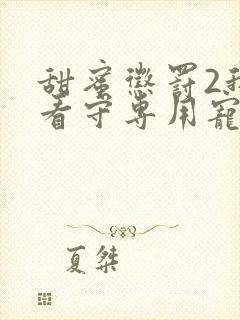 甜蜜懲罰2我
看守專用寵
夏桀